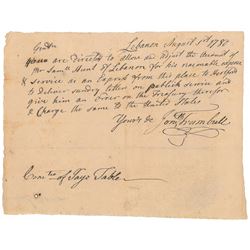 Gentn
Lebanon August 1st 1782
You are directed to allow an Adjust the Account of
Mr Samll Hunt of Lebanon for his reasonable expense
& Service as an Express from this place to Hartford
to deliver sundry letters on publick service and
give him an Order on the Treasury therefor
& Charge the same to the United States
Yours &c Jonth Trumbull
Comtee of Pays Table